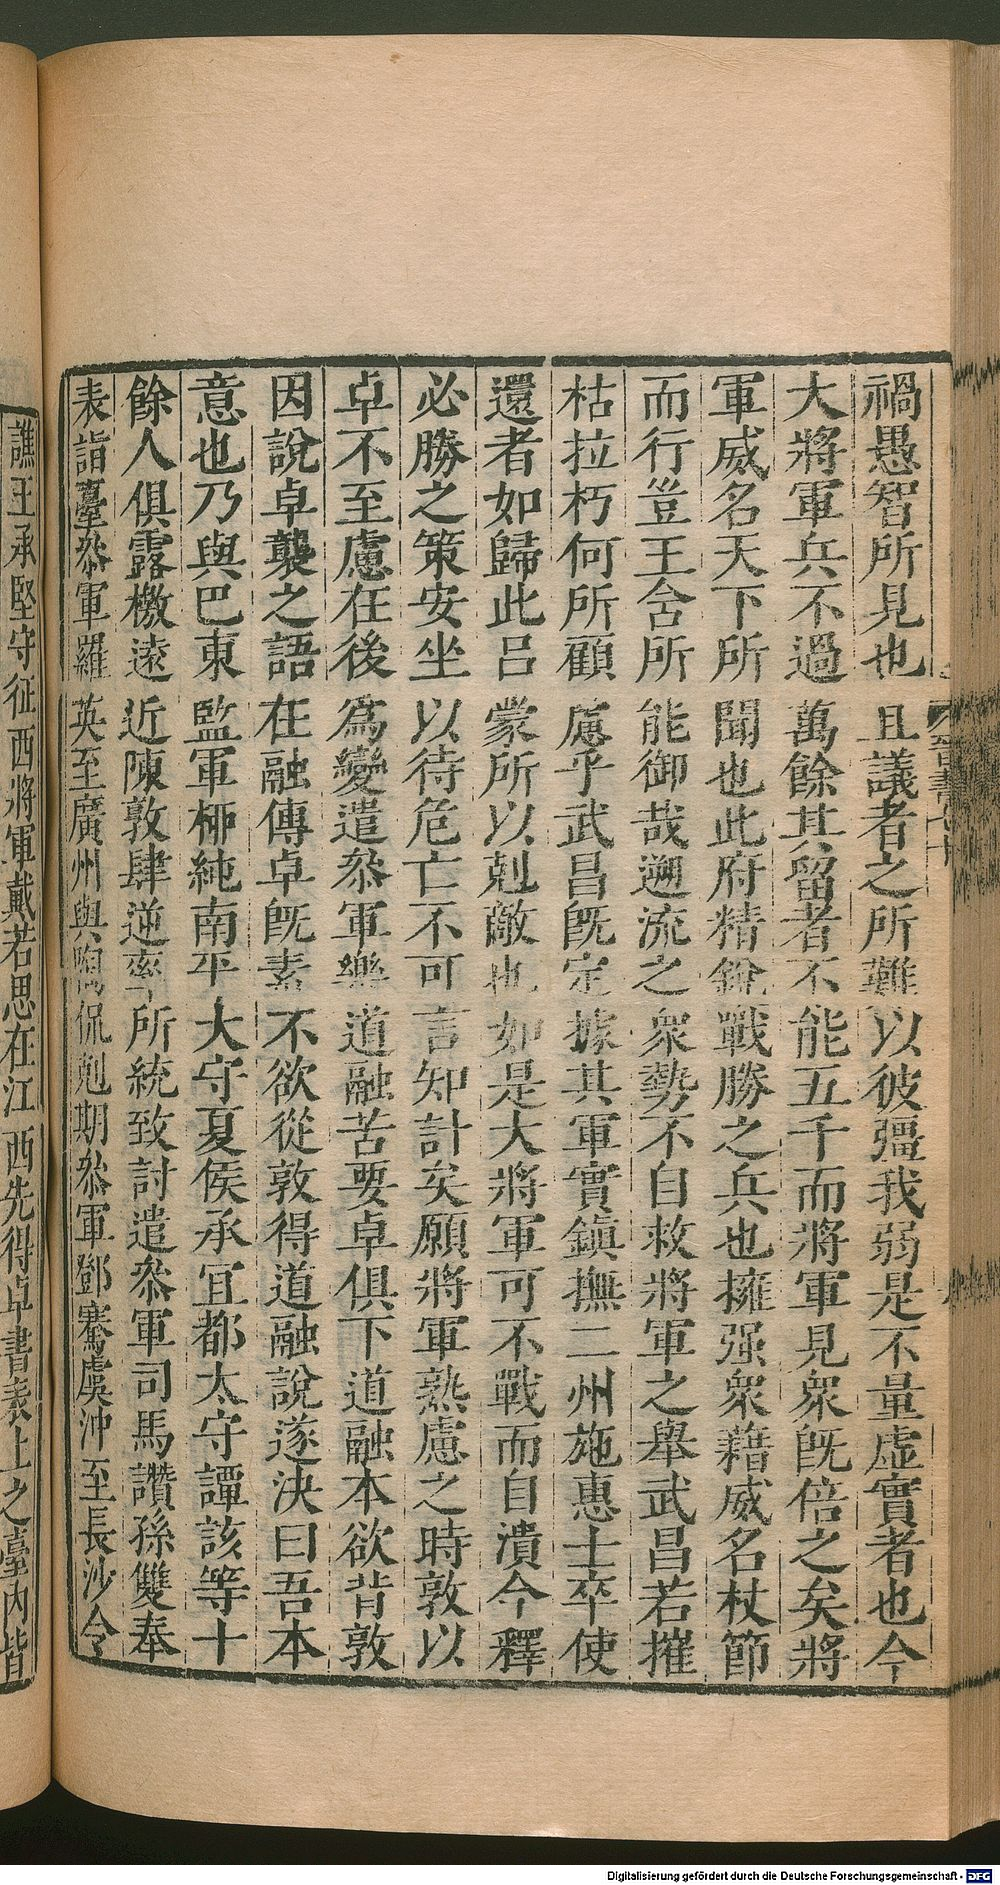 禍愚智所見也且議者之所難以彼彊我弱是不量虛實者也今
大將軍兵不過萬餘其留者不能五千而將軍見衆旣倍之矣將
軍威名天下所聞也此府精銳戰勝之兵也擁强衆藉威名杖節
而行豈王含所能御哉遡流之衆勢不自救將軍之舉武昌若摧
枯拉朽何所顧慮乎武昌旣定據其軍實鎮撫二州施惠士卒使
還者如歸此吕蒙所以剋敵也如是大將軍可不戰而自潰今釋
必勝之策安坐以待危亡不可言知計矣願將軍熟慮之時敦以
卓不至慮在後爲變遣叅軍樂道融苦要卓俱下道融本欲背敦
因說卓襲之語在融傳卓旣素不欲從敦得道融說遂決曰吾本
意也乃與巴東監軍柳純南平大守夏侯承宜都太守譚該等十
餘人俱露檄遠近陳敦肆逆率所統致討遣叅軍司馬讚孫雙奉
表詣臺叅軍羅英至廣州與陶侃剋期叅軍鄧騫虞沖至長沙令
譙王承堅守征西將軍戴若思在江西先得卓書表上之臺内皆
Digitalisierung gefördert durch die Deutsche Forschungsgemeinschaft - DFG